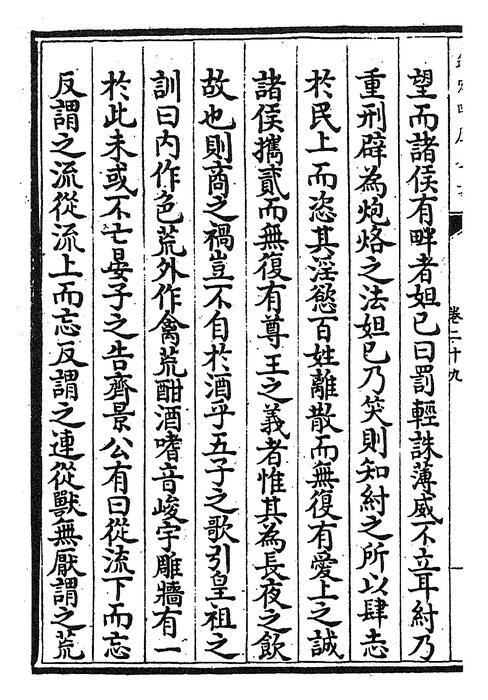 卷二十九
望而諸侯有畔者妲已曰罰輕誅薄威不立耳紂乃
重刑辟為炮烙之法妲已乃笑則知紂之所以肆志
於民上而恣其淫慾百姓離散而無復有愛上之誠
諸侯攜貳而無復有尊王之義者惟其為長夜之飲
故也則商之禍豈不自於酒乎五子之歌引皇祖之
訓曰内作色荒外作禽荒酣酒嗜音峻宇雕牆有一
於此未或不亡晏子之告齊景公有曰從流下而忘
反謂之流從流上而忘反謂之連從獸無厭謂之荒